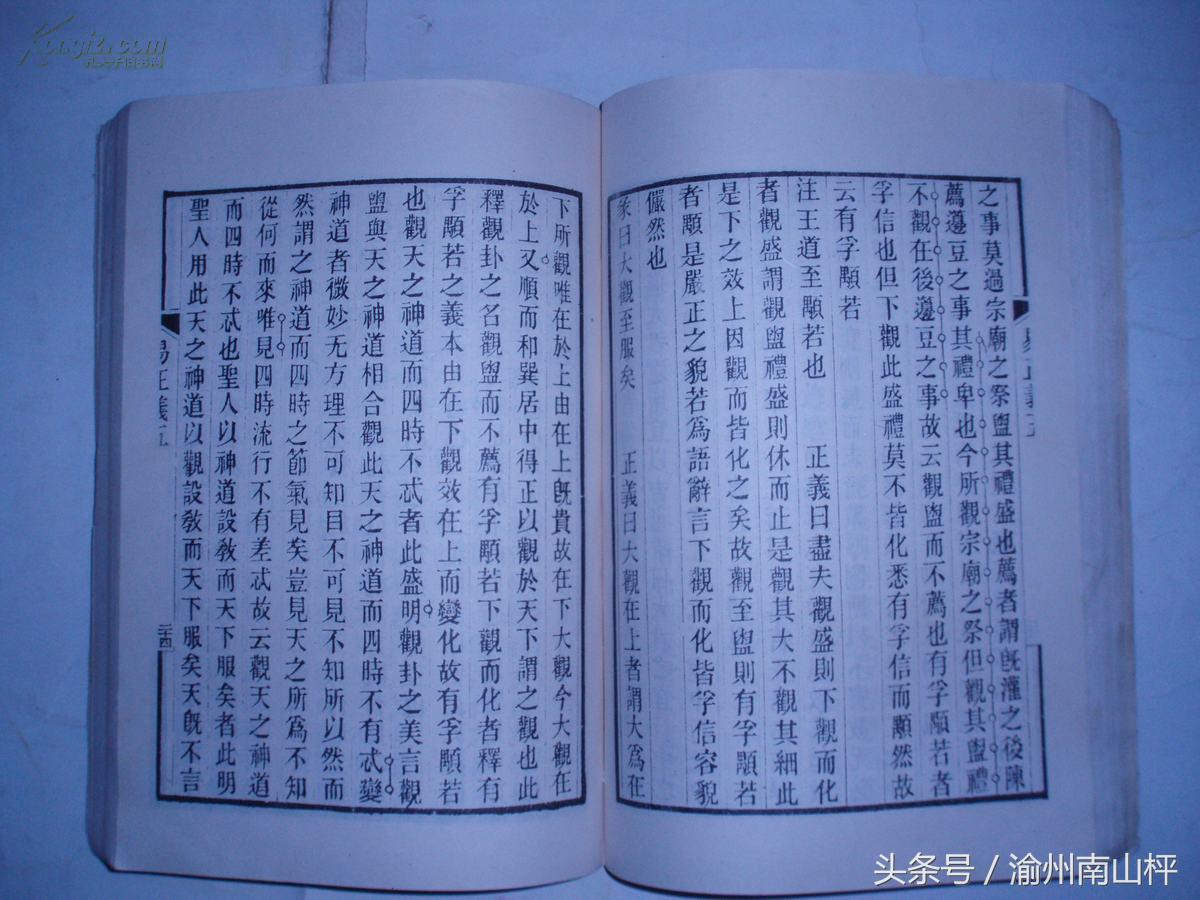 之事莫過宗廟之祭盥其禮盛也薦者謂旣灌之後陳
薦籩豆之事其禮卑也今所觀宗廟之祭但觀其盥禮
不觀在後籩豆之事故云觀盥而不薦也有孚顒若者
孚信也但下觀此盛禮莫不皆化悉有孚信而顒然故
云有孚顒若
注王道至顒若也 正義曰盡夫觀盛則下觀而化
者觀盛謂觀盥禮盛則休而止是觀其大不觀其細此
是下之效上因觀而皆化之矣故觀至盥則有孚顒若
者顒是嚴正之貌若爲語辭言下觀而化皆孚信容貌
儼然也
彖曰大觀至服矣 正義曰大觀在上者謂大爲在
下所觀唯在於上由在上旣貴故在下大觀今大觀在
於上又順而和巽居中得正以觀於天下謂之觀也此
釋觀卦之名觀盥而不薦有孚顒若下觀而化者釋有
孚顒若之義本由在下觀效在上而變化故有孚顒若
也觀天之神道而四時不忒者此盛明觀卦之美言觀
盥與天之神道相合觀此天之神道而四時不有忒變
神道者微妙无方理不可知目不可見不知所以然而
然謂之神道而四時之節氣見矣豈見天之所爲不知
從何而來唯見四時流行不有差忒故云觀天之神道
而四時不忒也聖人以神道設教而天下服矣者此明
聖人用此天之神道以觀設教而天下服矣天旣不言
易正義五
二十四
Kongfz.com
孔夫子旧书网
头条号 / 渝州南山枰